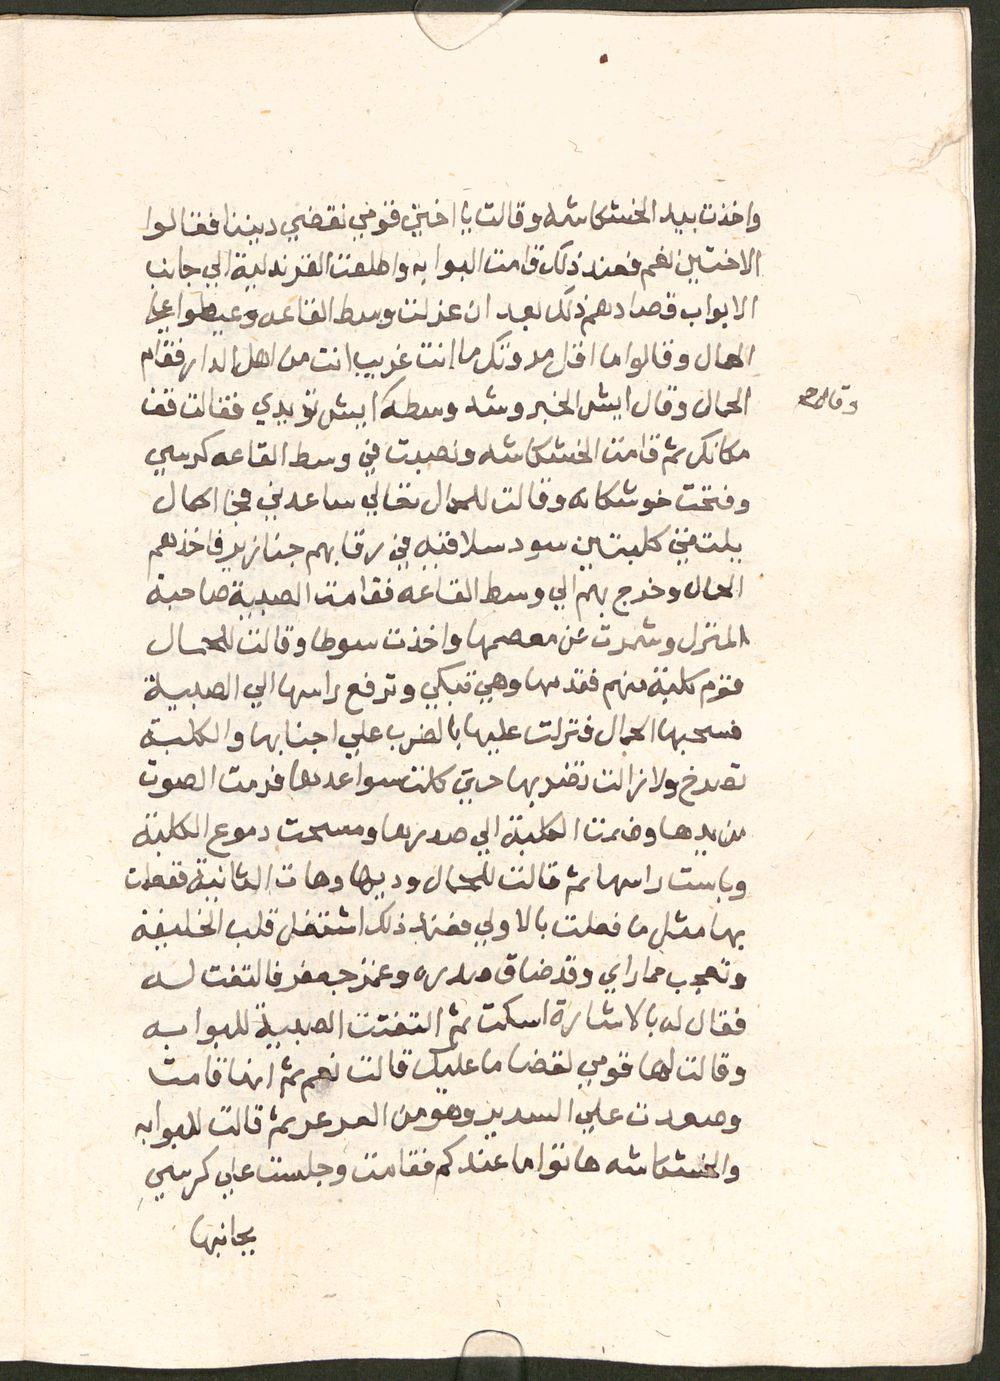 واخذت بيد الخشكاشه وقالت يا اختي قومي نقضي ديننا فقالوا
الاختين نعم فعند ذلك قامت البوابه واطلعت القرندلية الي جانب
الابواب قصادهم ذلك بعد ان عزلت وسط القاعه وعيطوا علي
الحمال وقالوا ما اقل مودتك ما انت غريب انت من اهل الدار فقام
الحمال وقال ايش الخبر وشد وسطه ايش تريدي فقالت قف
وقال
مكانك ثم قامت الخشكاشه ونصبت في وسط القاعه كرسي
وفتحت خوشكانه وقالت للحمال تعالي ساعدني فجا الحمال
يلتقي كلبتين سود سلاقيه في رقابهم جنازير فاخذهم
الحمال وخرج بهم الي وسط القاعه فقامت الصبية صاحبة
المنزل وشمرت عن معصمها واخذت سوطا وقالت للحمال
قوم كلبة منهم فقدمها وهي تبكي وترفع راسها الي الصبية
فسحبها الحمال فنزلت عليها بالضرب علي اجنابها والكلبة
تصرخ ولا زالت تضربها حتي كلت سواعدها فرمت الصوت
من يدها وضمت الكلبة الي صدرها ومسحت دموع الكلبة
وباست راسها ثم قالت للحمال وديها وهات الثانية ففعلت
بها مثل ما فعلت بالاولي فعند ذلك اشتغل قلب الخليفة
وتعجب مما راي وقد ضاق صدره وغمز جعفر فالتفت له
فقال له بالاشارة اسكت ثم التفتت الصبية للبوابه
وقالت لها قومي لقضا ما عليك قالت نعم ثم انها قامت
وصعدت علي السرير وهو من العرعر ثم قالت للبوابه
والخشكاشه هاتوا ما عندكم فقامت وجلست علي كرسي
بجانبها